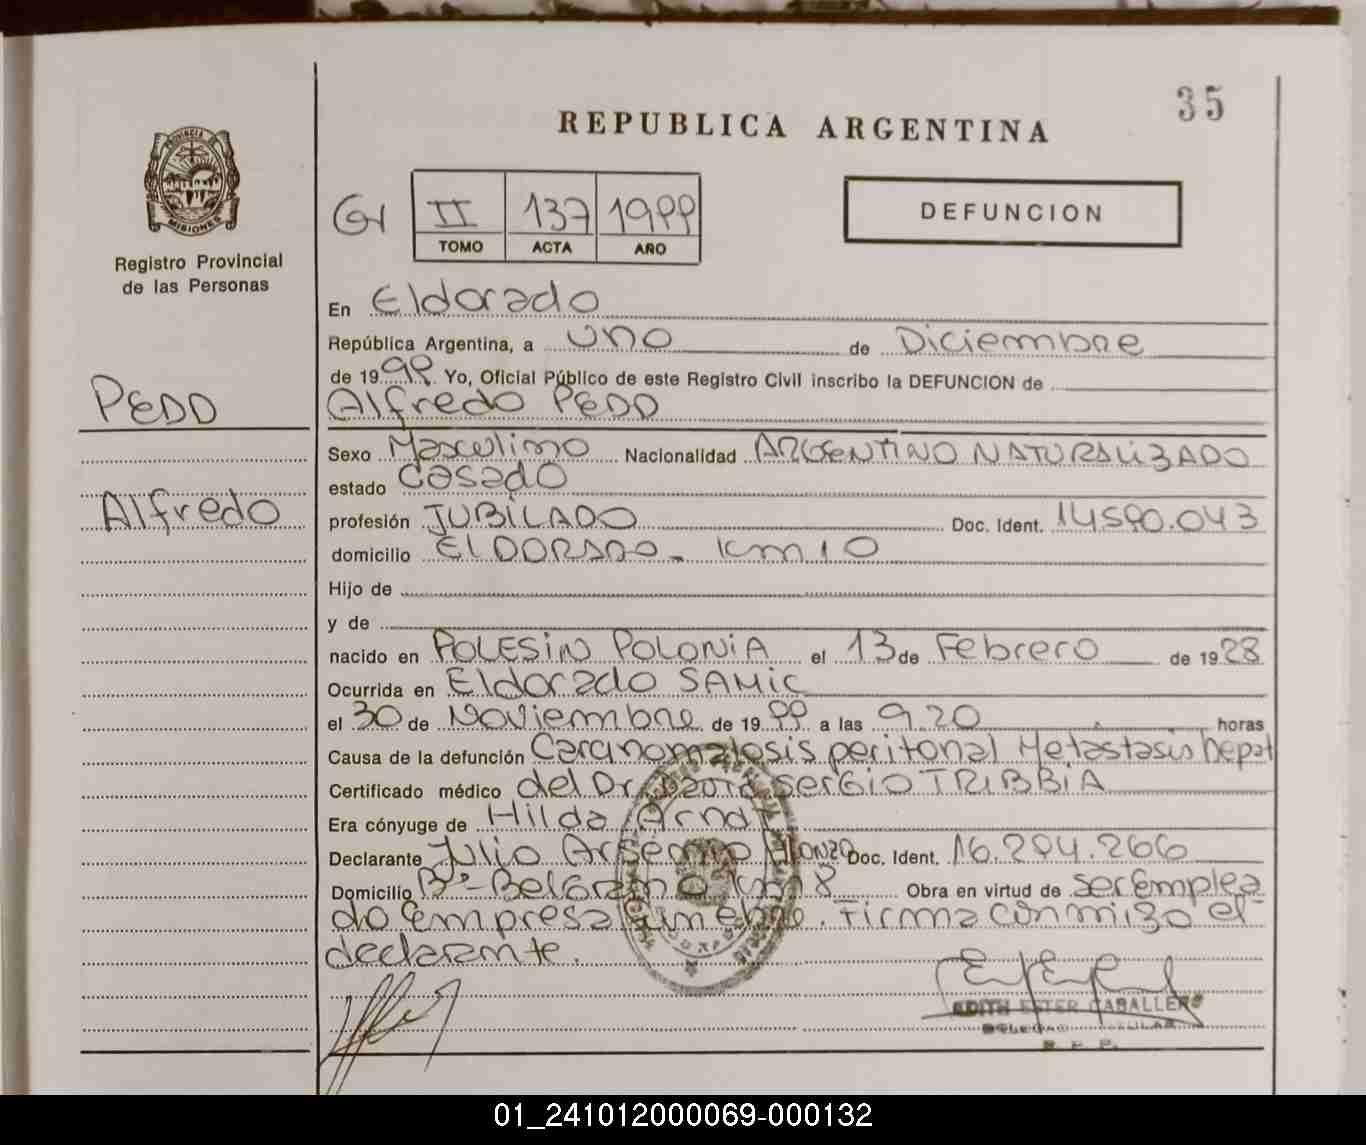 35
REPUBLICA ARGENTINA
PROVINCIA DE
MISIONES
Registro Provincial
de las Personas
II 137 1999
TOMO ACTA AÑO
DEFUNCION
En Eldorado
República Argentina, a uno de Diciembre
de 1999. Yo, Oficial Público de este Registro Civil inscribo la DEFUNCION de
PEDD
Alfredo PEDD
Sexo Masculino Nacionalidad ARGENTINO NATURALIZADO
estado Casado
Alfredo
profesión JUBILADO Doc. Ident. 14.590.043
domicilio ELDORADO - Km 10
Hijo de
y de
nacido en POLESIN POLONIA el 13 de Febrero de 1928
Ocurrida en Eldorado SAMIC
el 30 de Noviembre de 1999 a las 9.20 horas
Causa de la defunción Carcinomatosis peritonal Metastasis hepat
Certificado médico del Dr. Sergio TRIBBIA
Era cónyuge de Hilda Arndt
Declarante Julio Arsenio Doc. Ident. 16.294.266
Domicilio Bº-Belgrano Km 8 Obra en virtud de ser emplea
do empresa funebre. Firma conmigo el
declarante.
EDITH ESTER CABALLERO
DELEGADO TITULAR
R. P. P.
01_241012000069-000132